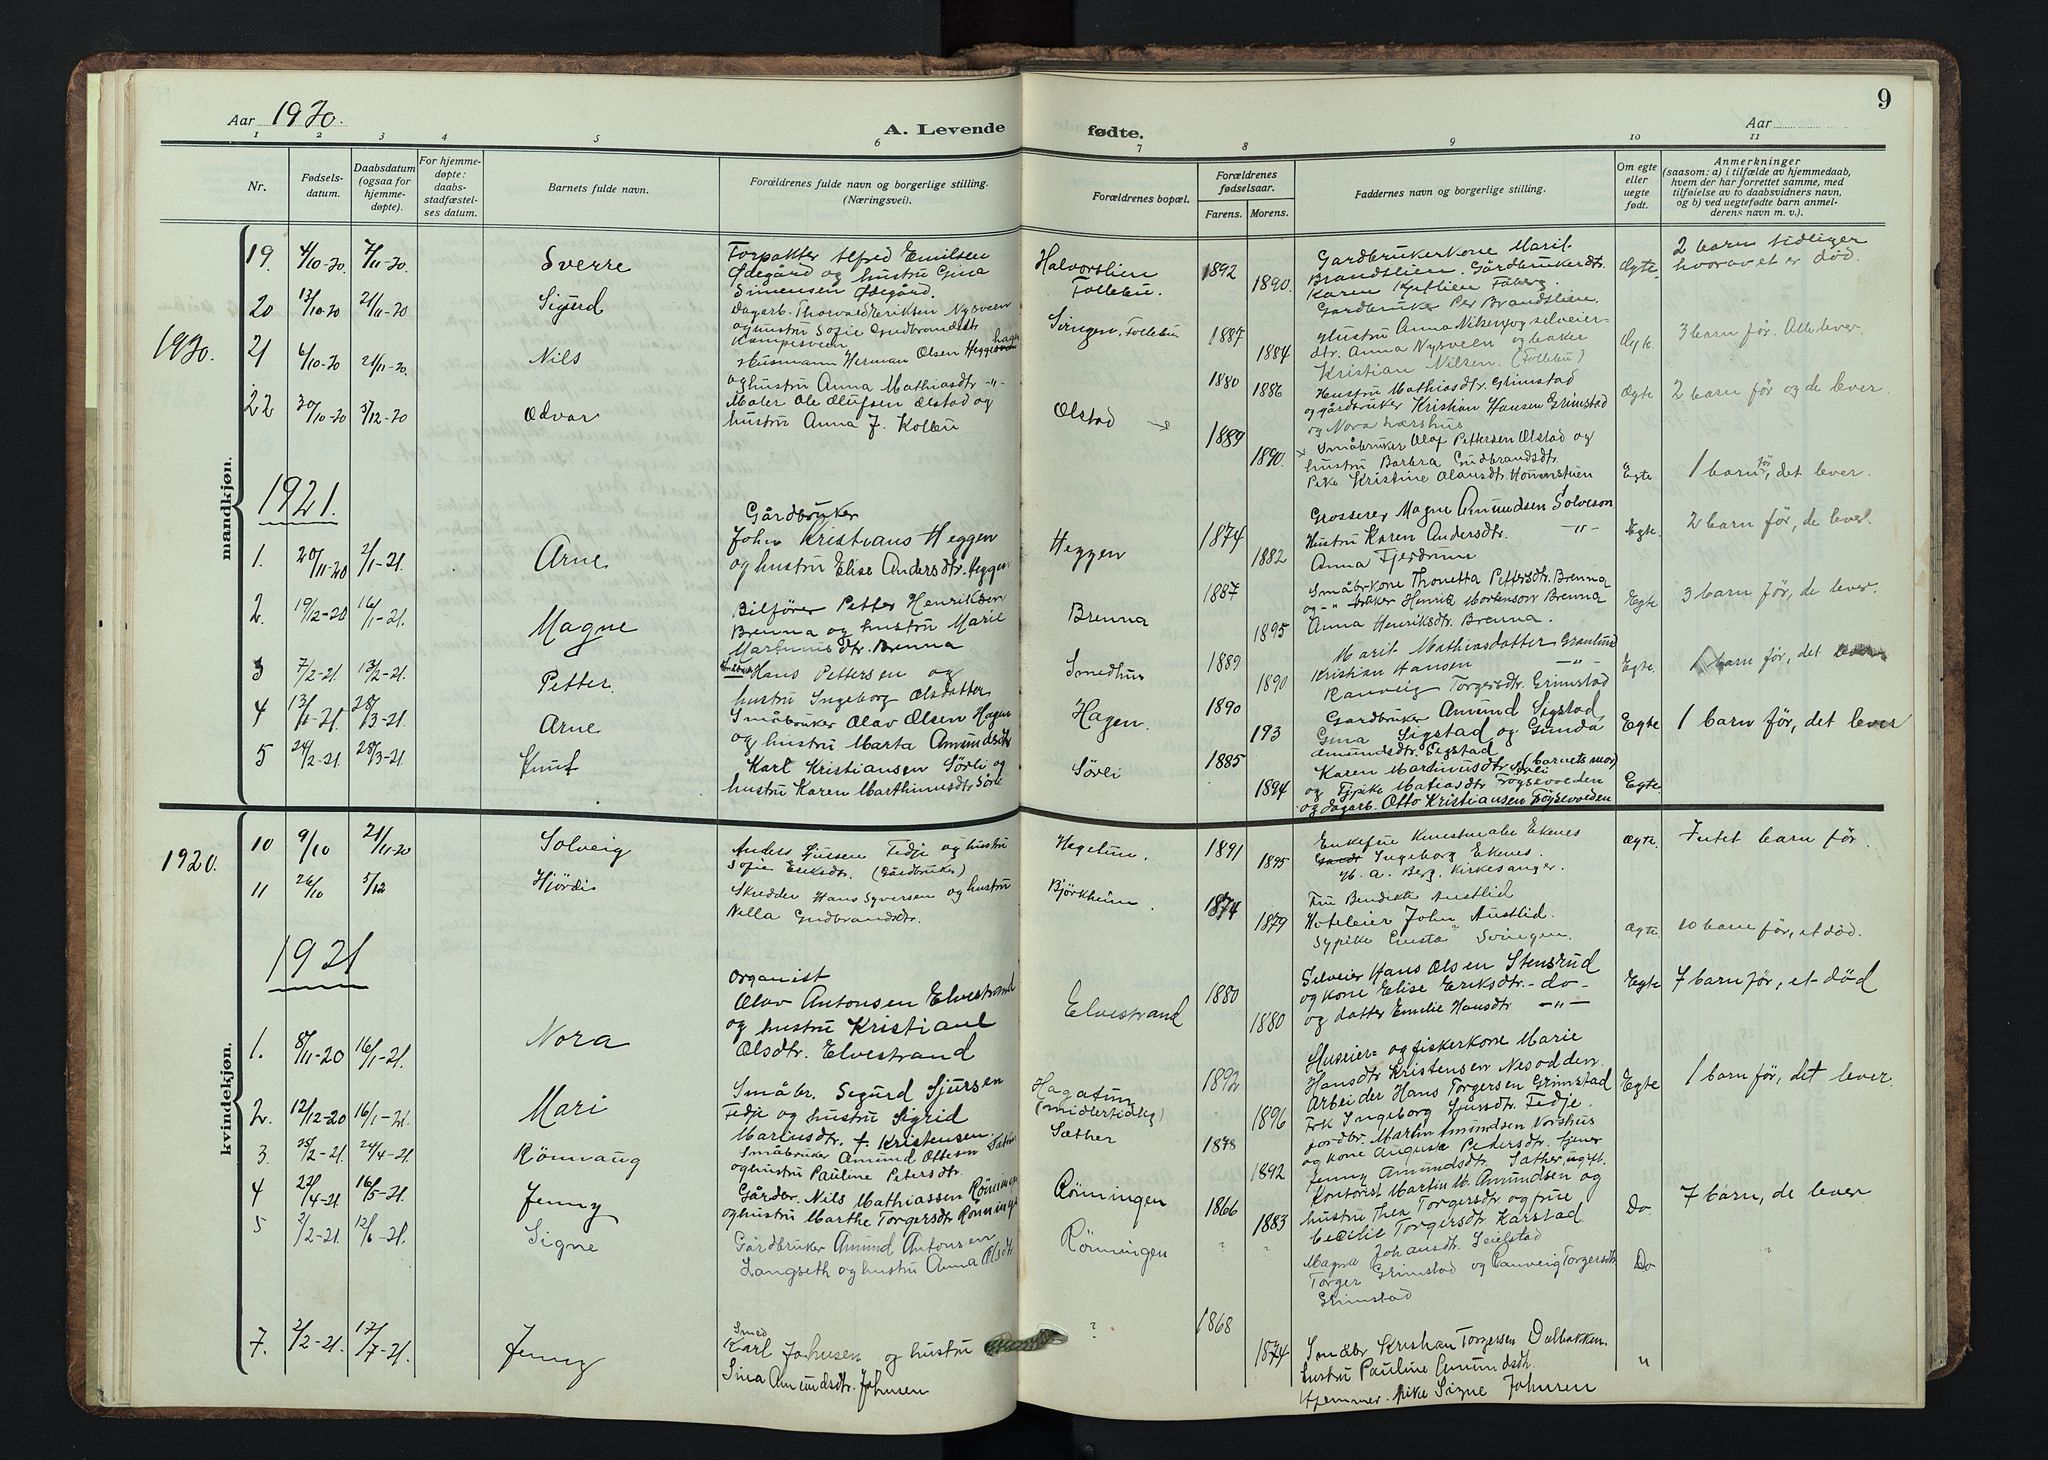 Aar 1920.
A. Levende
fødte.
Aar
9
1 2 3 4 5 6 7 8 9 10 11
Nr.
Fødselsdatum.
Daabsdatum (ogsaa for hjemmedøpte).
For hjemmedøpte: daabsstadfæstelses datum.
Barnets fulde navn.
Forældrenes fulde navn og borgerlige stilling. (Næringsvei).
Forældrenes bopæl.
Forældrenes fødselsaar.
Farens. Morens.
Faddernes navn og borgerlige stilling.
Om egte eller uegte født.
Anmerkninger
(saasom: a) i tilfælde av hjemmedaab,
hvem der har forrettet samme, med
tilføielse av to daabsvidners navn,
og b) ved uegtefødte barn anmelderens navn m. v.).
mandkjøn.
1920.
19. 4/10-20 7/11-20. Sverre
Forpakter Alfred Emilsen
Ødegård og hustru Gina
Simensen Ødegård.
Halvorslien
Follebu.
1892 1890.
Gardbrukerkone Marit
Brandslien. Gårdbrukerdtr.
Karen Fåberg.
Gardbruker Per Brandslien.
Ægte
2 barn tidliger
hvorav et er død.
20 13/10-20 21/11-20 Sigurd
Dagarb. Thorvald Eriksen Nysveen
og hustru Sofie Gudbrandsdtr
Kampesveen
Svingen. Follebu
1887 1884
og hustru Anna Nilsen og selveier=
dtr. Anna Nysveen og baker
Kristian Nilsen. (Follebu)
3 barn før. Alle lever
21 6/10-20 21/11-20. Nils
Husmann Herman Olsen Heggehagen
og hustru Anna Mathiasdtr -"-
1880 1886
Hustru Mathiasdtr. Grimstad
og gårdbruker Kristian Hansen Grimstad
og Nora
Ægte
2 barn før og de lever.
22 30/10-20 5/12-20 Odvar
Maler Ole Olufsen Ølstad og
hustru Anna J. Kollbu
Ølstad
1889 1890.
Småbruker Olaf Pettersen Ølstad og
hustru Barbra Gudbrandsdtr.
Pike Kristine Olausdtr. Hommstuen
Egte
1 barn før, det lever.
1921.
1. 20/11-20 2/1-21. Arne
Gårdbruker
John Kristians Heggen
og hustru Elise Andersdtr. Heggen
Heggen
1874 1882
Grosserer Magne Amundsen Solveson
Hustru Karen Andersdtr. -"-
Anna Fjerdrum
Egte.
2 barn før, de lever.
2. 19/12-20 16/1-21. Magne
Bilfører Petter Henriksen
Brenna og hustru Marie
Martinusdtr. Brenna
Brenna
1887 1895
Småbr.kone Thonetta Pettersdtr. Brenna
og -"- bruker Henrik Mortensen Brenna
Anna Henriksdtr. Brenna.
Egte
3 barn før, de lever.
3 7/2-21. 13/2-21. Petter.
Hans Pettersen og
hustru Ingeborg Olsdatter
Smedhus
1889 1890
Marit Mathiasdatter Granlund
Kristian Hansen -"-
Ranveig Torgersdtr. Grimstad
Egte.
1 barn før, det lever
4 13/1-21. 28/3-21. Arne
Småbruker Olav Olsen Hagen
og hustru Marta Amundsdtr
Hagen
1890 193
Gardbruker Amund Sigstad
Gina Sigstad og Gunda
Amundsdtr. Sigstad
Egte
1 barn før, det lever
5 24/2-21. 28/3-21. Knut
Karl Kristiansen Sørli og
hustru Karen Marthinusdtr Sørli
Sørli
1885 1894
Karen Martinusdtr Sørli (barnets mor)
og Tjpike Matiasdtr Frøysevolden
og dagarb. Otto Kristiansen Frøysevolden
Egte
kvindekjøn.
1920.
10 9/10 21/11-20 Solveig
Anders Sjursen Fedje og hustru
Sofie Eriksdtr. (Gårdbruker)
Hagetun.
1891 1895
Enkefrue Kunstmaler Ekenes
Ingeborg Ekenes.
M. A. Berg, Kirkesanger.
Ægte.
Intet barn før.
11 26/10 5/12 Hjørdis
Skredder Hans Syversen og hustru
Nilla Gudbrandsdtr.
Bjørkheim.
1874 1879
Fru Bendikte Austlid
Hoteleier John Austlid.
Sypike Gusta Svingen.
Ægte.
10 barn før, et død.
1921
1. 8/11-20 16/1-21. Nora
Organist
Olav Antonsen Elvestrand
og hustru Kristiane
Olsdtr. Elvestrand
Elvestrand
1880 1880
Selveier Hans Olsen Stensrud
og kone Elise Eriksdtr. - do -
og datter Emilie Hansdtr. -"-
Egte
7 barn før, et død
2. 12/12-20 16/1-21. Mari
Småbr. Sigurd Sjursen
Fedje og hustru Sigrid
Mariusdtr. f. Kristensen.
Hagatun
(midlertidig)
1892 1896
Huseier= og fiskerkone Marie
Hansdtr Kristensen Nesodden
Arbeider Hans Torgersen Grimstad
Frk Ingeborg Sjursdtr. Fedje.
Egte
1 barn før, det lever.
3. 25/2-21. 24/4-21. Rønnaug
Småbruker Amund Ottesen Sæther
og hustru Pauline Petersdtr.
Sæther
1878 1892
Jordbr. Martin Amundsen Norshus
og kone Auguste Pedersdtr.
Jenny Amundsdtr. Sæther, ugift.
4 22/4-21. 16/5-21. Jenny
Gårdbr. Nils Mathiassen Rønningen
og hustru Marthe Torgersdtr Rønningen
Rønningen
1866 1883
Kontorist Martin M. Amundsen og
hustru Thea Torgersdtr og frue
Cecilie Torgersdtr. Karstad.
Do.
7 barn, de lever
5 2/2-21. 12/6-21. Signe
Gårdbruker Amund Antonsen
Langseth og hustru Anna Olsdtr
Rønningen
" "
Magna Johansdtr. Seielstad
Torger Grimstad og Ranveig Torgersdtr
Grimstad
Do
"
7. 2/2-21. 17/7-21. Jenny
Smed
Karl Johnsen og hustru
Sina Amundsdtr. Johnsen
?
1868 1874
Småbr Kristian Torgersen Dalbakken.
hustru Pauline Amundsdtr.
Hjemmev. pike Signe Johnsen
"